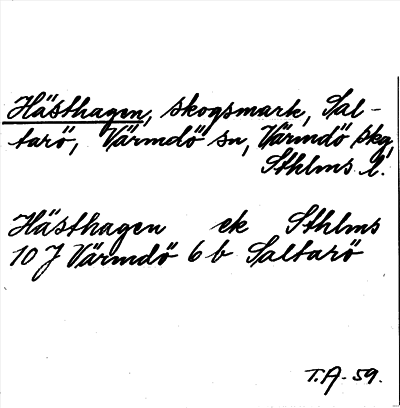 Hästhagen, skogsmark, Sal-
tarö, Värmdö sn, Värmdö skg,
Sthlms l.
Hästhagen ek Sthlms
10 J Värmdö 6 b Saltarö
T.A-59.